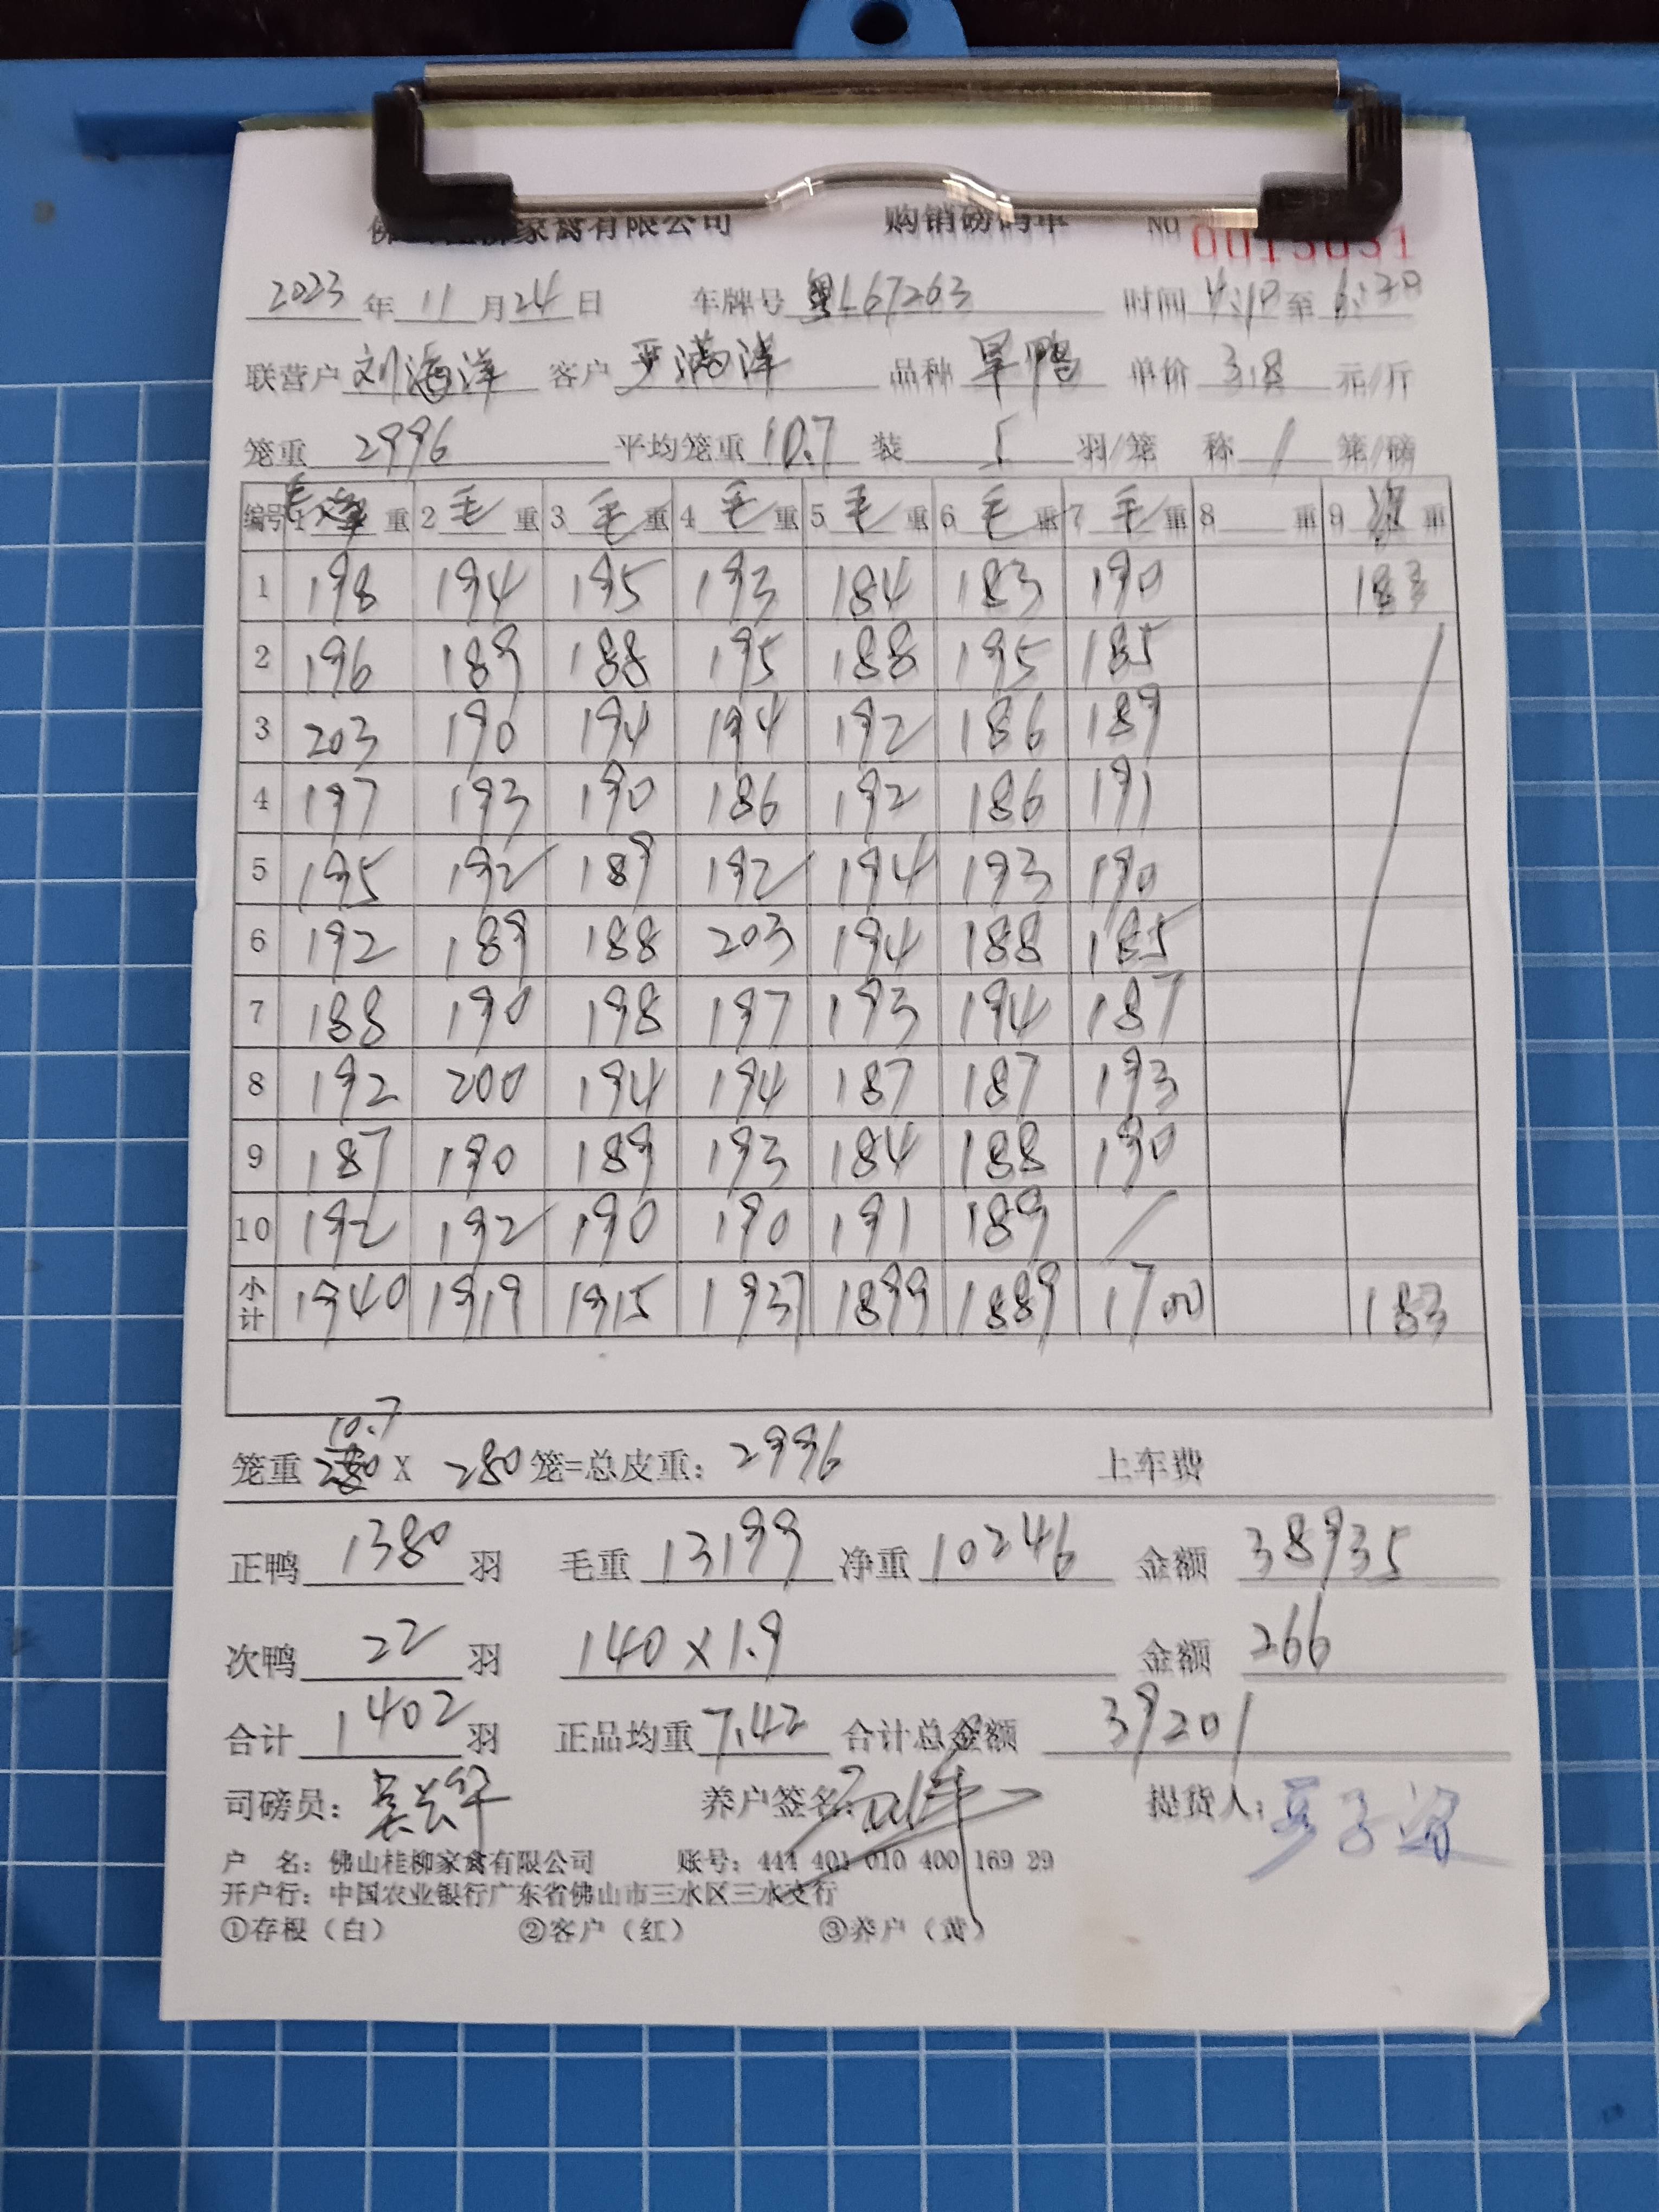 佛山桂柳家禽有限公司 购销磅码单 No 0015051
2023年11月24日 车牌号 粤L67263 时间 4:10至6:20
联营户 刘海洋 客户 严满洋 品种 旱鸭 单价 3.8 元/斤
笼重 2996 平均笼重 10.7 装 5 羽/笼 称 1 笼/磅
编号 1 毛 重 2 毛 重 3 毛 重 4 毛 重 5 毛 重 6 毛 重 7 毛 重 8 重 9 重
1 198 194 195 193 184 183 190 183
2 196 189 188 195 188 195 185
3 203 190 194 194 192 186 189
4 197 193 190 186 192 186 191
5 195 192 189 192 194 193 190
6 192 189 188 203 194 188 185
7 188 190 198 197 193 194 187
8 192 200 194 194 187 187 193
9 187 190 189 193 184 188 190
10 192 192 190 190 191 189 /
小计 1940 1919 1915 1937 1899 1889 1700 183
10.7
笼重 280 X 280 笼=总皮重: 2996 上车费
正鸭 1380 羽 毛重 13199 净重 10246 金额 38935
次鸭 22 羽 140×1.9 金额 266
合计 1402 羽 正品均重 7.42 合计总金额 39201
司磅员: 养户签名: 提货人:
户 名: 佛山桂柳家禽有限公司 账号: 444 401 010 400 169 29
开户行: 中国农业银行广东省佛山市三水区三水支行
①存根（白） ②客户（红） ③养户（黄）